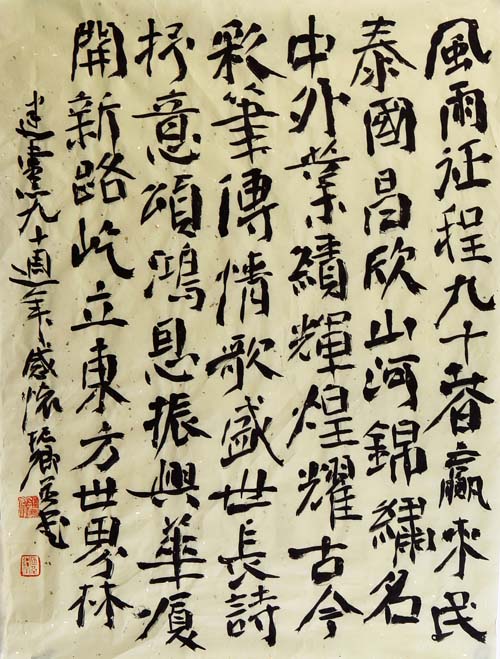 風雨征程九十春贏來民
泰國昌欣山河錦繡名
中外業績輝煌耀古今
彩筆傳情歌盛世長詩
抒意頌鴻恩振興華夏
開新路屹立東方世界林
建黨九十週年感懷